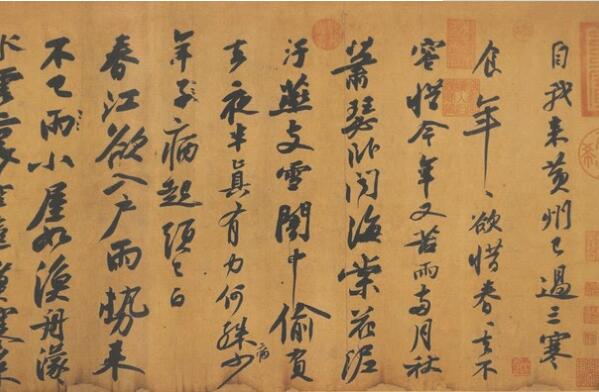 自我來黃州已過三寒
食年〻欲惜春〻去不
容惜今年又苦雨兩月秋
蕭瑟卧聞海棠花泥
汙燕支雪闇中偷負
去夜半真有力何殊病少
年子病起頭已白
春江欲入戶雨勢來
不已雨小屋如漁舟濛
水雲裏空庖煮寒菜